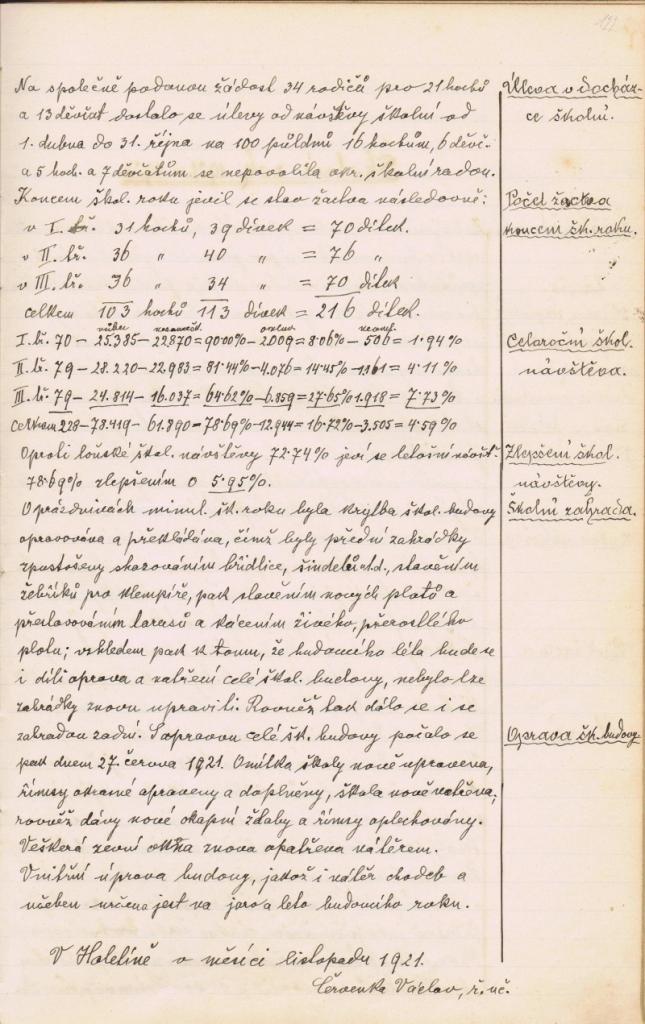 Na společně podanou žádost 34 rodičů pro 21 hochů
a 13 děvčat dostalo se úlevy od návštěvy školní od
1. dubna do 31. října na 100 půldnů 16 hochům, 6 děvč.
a 5 hoch. a 7 děvčatům se nepovolila okr. školní radou.
Úleva v docház-
ce školní.
Koncem škol. roku jevil se stav žactva následovně:
v I. tř. 31 hochů, 39 dívek = 70 dítek.
v II. tř. 36 „ 40 „ = 76 „
v III. tř. 36 „ 34 „ = 70 dítek
celkem 103 hochů 113 dívek = 216 dítek.
Počet žactva
koncem šk. roku.
I. tř. 70 – 25.385 – 22870 = 90.00% – 2009 = 8.06% – 506 = 1.94%
II. tř. 79 – 28.220 – 22.983 = 81.44% – 4.076 = 14.45% – 1161 = 4.11%
III. tř. 79 – 24.814 – 16.037 = 64.62% – 6.859 = 27.65% 1.918 = 7.73%
celkem 228 – 78.419 – 61.890 = 78.69% – 12.944 = 16.72% – 3.505 = 4.59%
Celoroční škol.
návštěva.
Oproti loňské škol. návštěvy 72.74% jeví se letošní návšt.
78.69% zlepšením o 5.95%.
Zlepšení škol.
návštěvy.
O prázdninách minul. šk. roku byla krytba škol. budovy
opravována a překládána, čímž byly přední zahrádky
zpustošeny shazováním břidlice, šindelů atd., stavěním
žebříků pro klempíře, pak stavěním nových plotů a
přestavováním tarasů a kácením živého, přerostlého
plotu; vzhledem pak k tomu, že budoucího léta bude se
i díti oprava a natření celé škol. budovy, nebylo lze
zahrádky znovu upraviti. Rovněž tak dálo se i se
zahradou zadní. S opravou celé šk. budovy počalo se
pak dnem 27. června 1921. Omítka školy nově upravena,
římsy otrané opraveny a doplněny, škola nově natřena,
rovněž dány nové okapní žlaby a římsy oplechovány.
Veškerá zevní okna znova opatřena nátěrem.
Vnitřní úprava budovy, jakož i nátěr chodeb a
učeben určena jest na jaro a léto budoucího roku.
Školní zahrada.
Oprava šk. budovy
V Holetíně v měsíci listopadu 1921.
Červenka Václav, ř. uč.